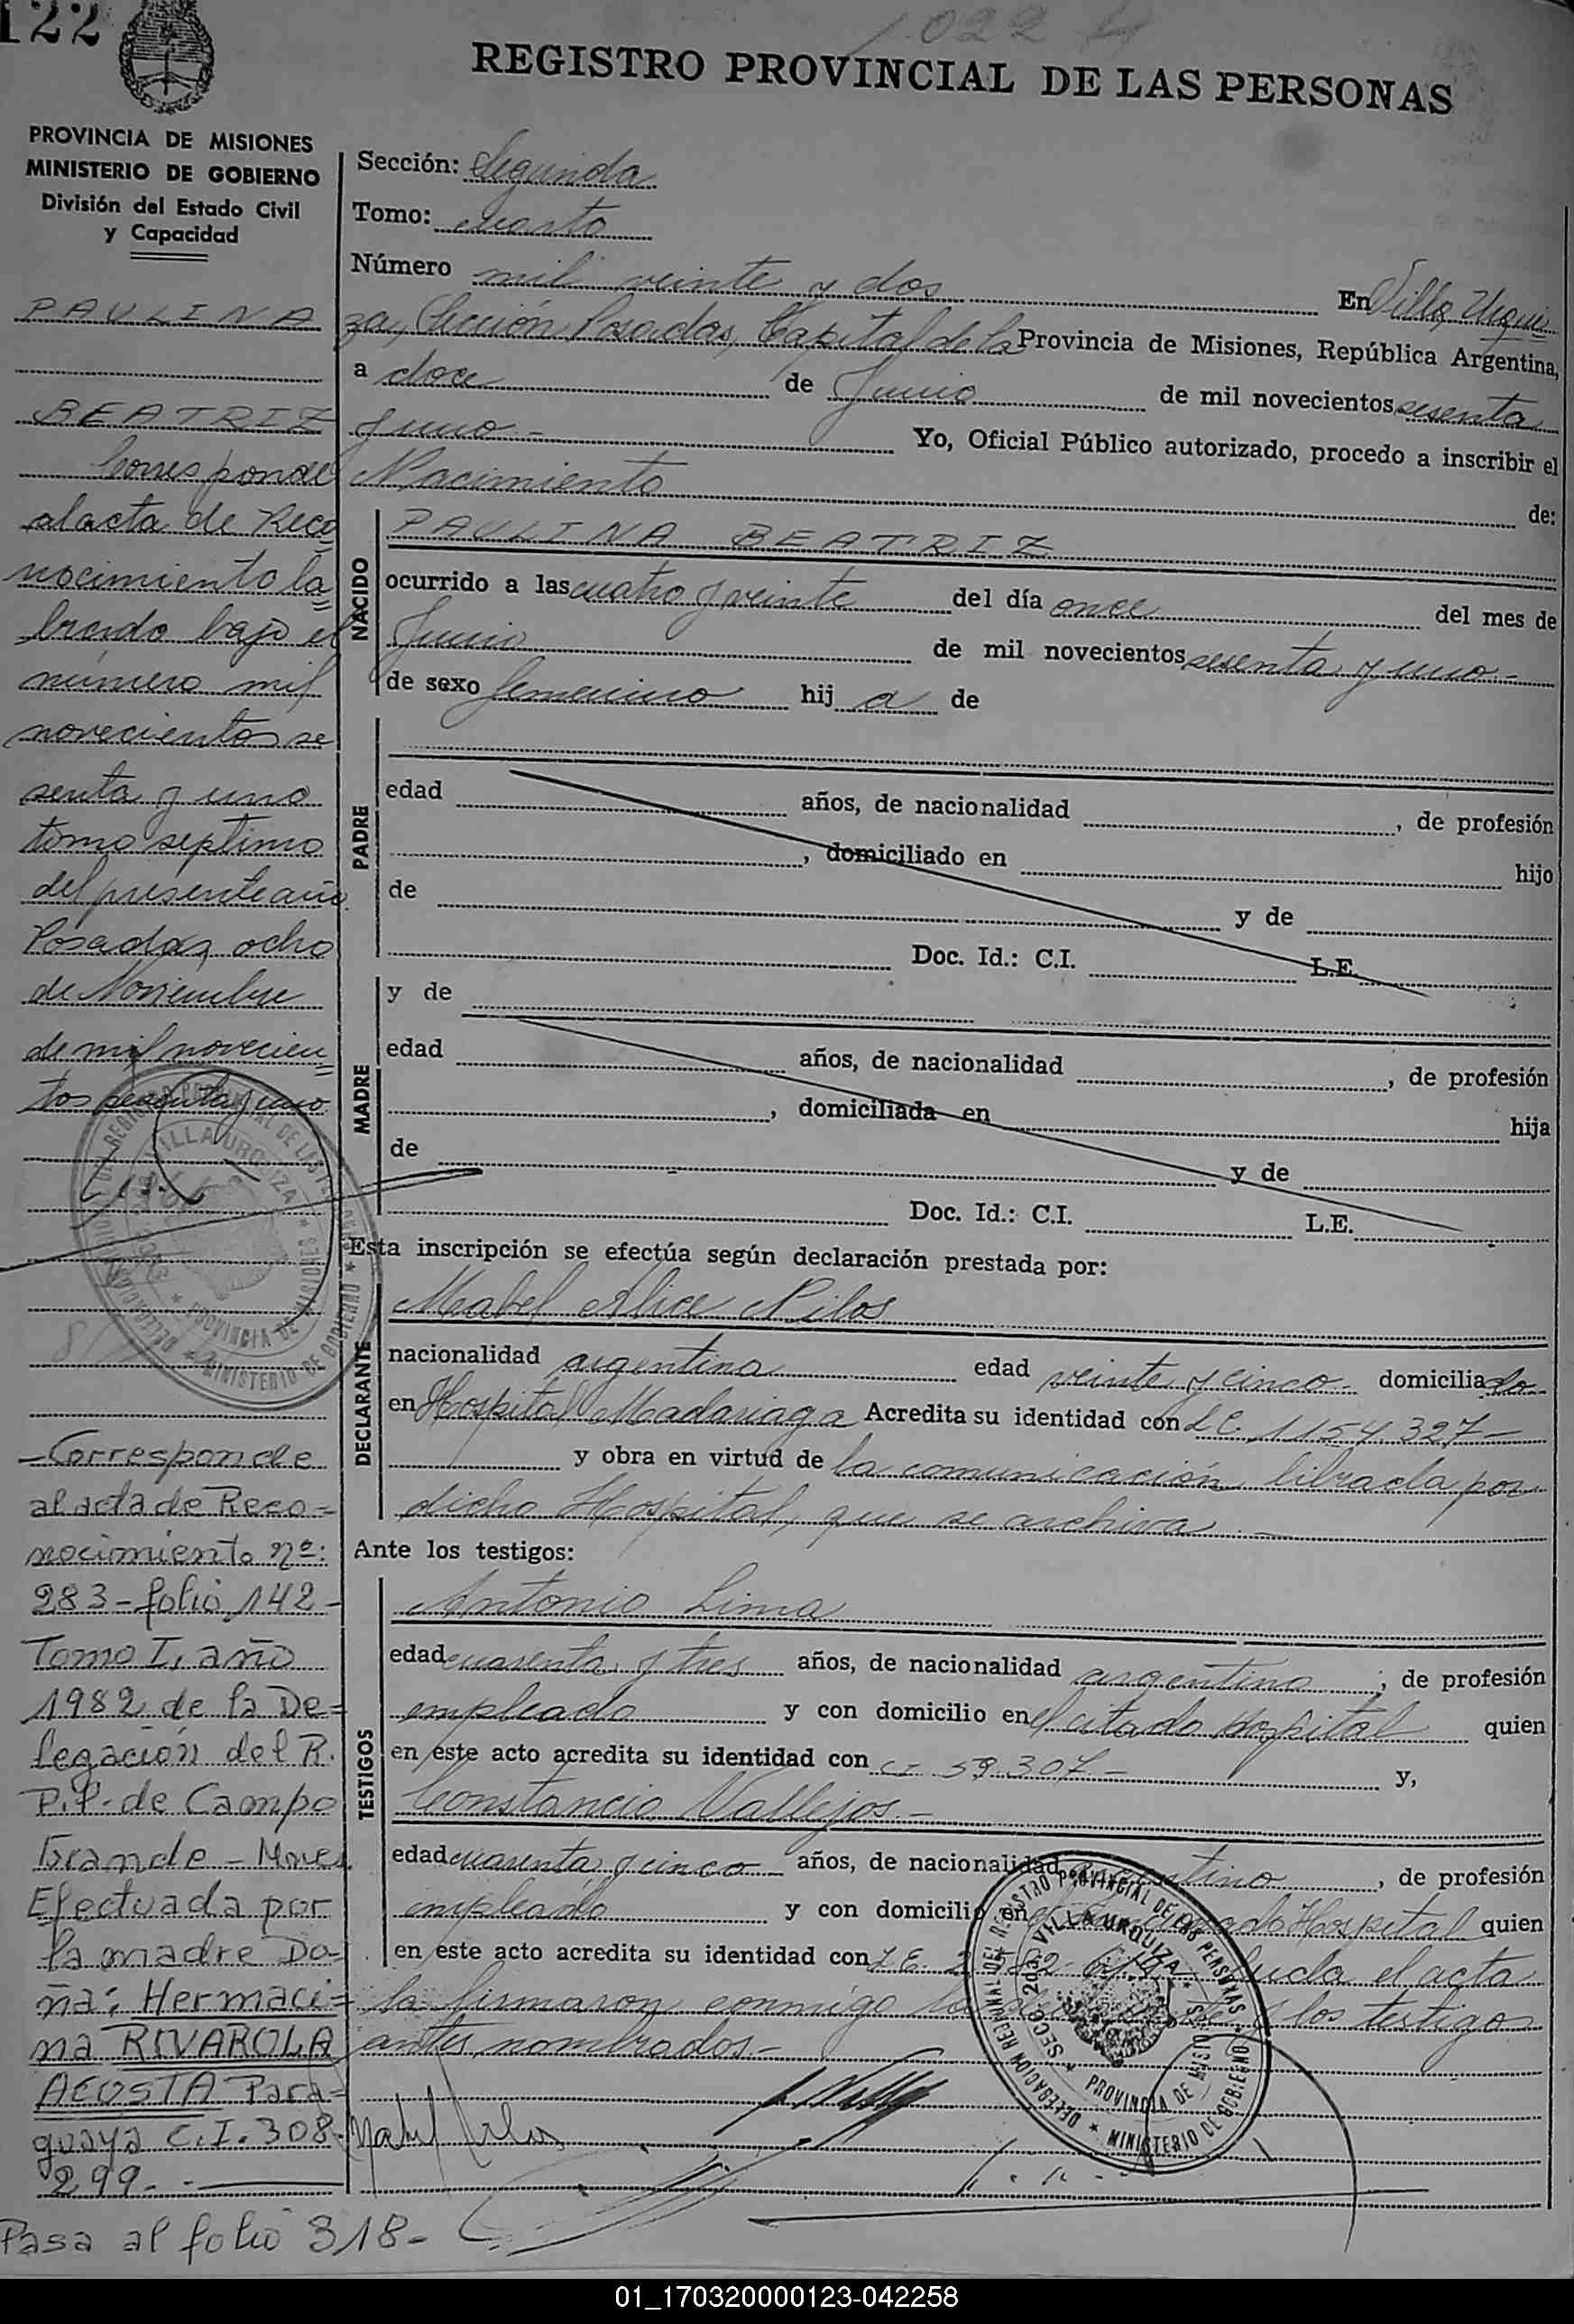 122
1022
REGISTRO PROVINCIAL DE LAS PERSONAS
PROVINCIA DE MISIONES
MINISTERIO DE GOBIERNO
División del Estado Civil
y Capacidad
PAULINA
BEATRIZ
Corresponde
al acta de Reco
nocimiento la=
brado bajo el
número mil
novecientos se
senta y uno
tomo septimo
del presente año
Posadas, ocho
de Noviembre
de mil novecien=
tos sesenta y uno
- Corresponde
al acta de Reco=
nocimiento nº:
283 - folio 142 -
Tomo I, año
1982 de la De=
legación del R.
P.P. de Campo
Grande - Mnes.
Efectuada por
la madre Do-
ña: Hermaci=
na RIVAROLA
ACOSTA Para=
guaya C.I. 308-
299.-
Pasa al folio 318-
Sección: Segunda
Tomo: cuarto
Número mil veinte y dos En Villa Urqui
za, Sección Posadas, Capital de la Provincia de Misiones, República Argentina,
a doce de Junio de mil novecientos sesenta
y uno - Yo, Oficial Público autorizado, procedo a inscribir el
Nacimiento de:
NACIDO
PAULINA BEATRIZ
ocurrido a las cuatro y veinte del día once del mes de
Junio de mil novecientos sesenta y uno -
de sexo femenino hij a de
PADRE
edad años, de nacionalidad , de profesión
, domiciliado en hijo
de y de
Doc. Id.: C.I. L.E.
MADRE
y de
edad años, de nacionalidad , de profesión
, domiciliada en hija
de y de
Doc. Id.: C.I. L.E.
Esta inscripción se efectúa según declaración prestada por:
DECLARANTE
Mabel Alice Pilos
nacionalidad argentina edad veinte y cinco - domiciliado
en Hospital Madariaga Acredita su identidad con L.C. 1154.327 -
y obra en virtud de la comunicación librada por
dicho Hospital, que se archiva. -
Ante los testigos:
TESTIGOS
Antonio Lima
edad cuarenta y tres años, de nacionalidad argentino ; de profesión
empleado y con domicilio en el citado Hospital quien
en este acto acredita su identidad con CI 59.307 - y,
Constancio Vallejos -
edad cuarenta y cinco años, de nacionalidad argentino , de profesión
empleado y con domicilio en Hospital quien
en este acto acredita su identidad con L.E. el acta
la firmaron conmigo los testigos
antes nombrados. -
DELEGACION REGIONAL DEL REGISTRO PROVINCIAL DE LAS PERSONAS
SECC. 2da. VILLA URQUIZA
PROVINCIA DE MISIONES
MINISTERIO DE GOBIERNO
01_170320000123-042258